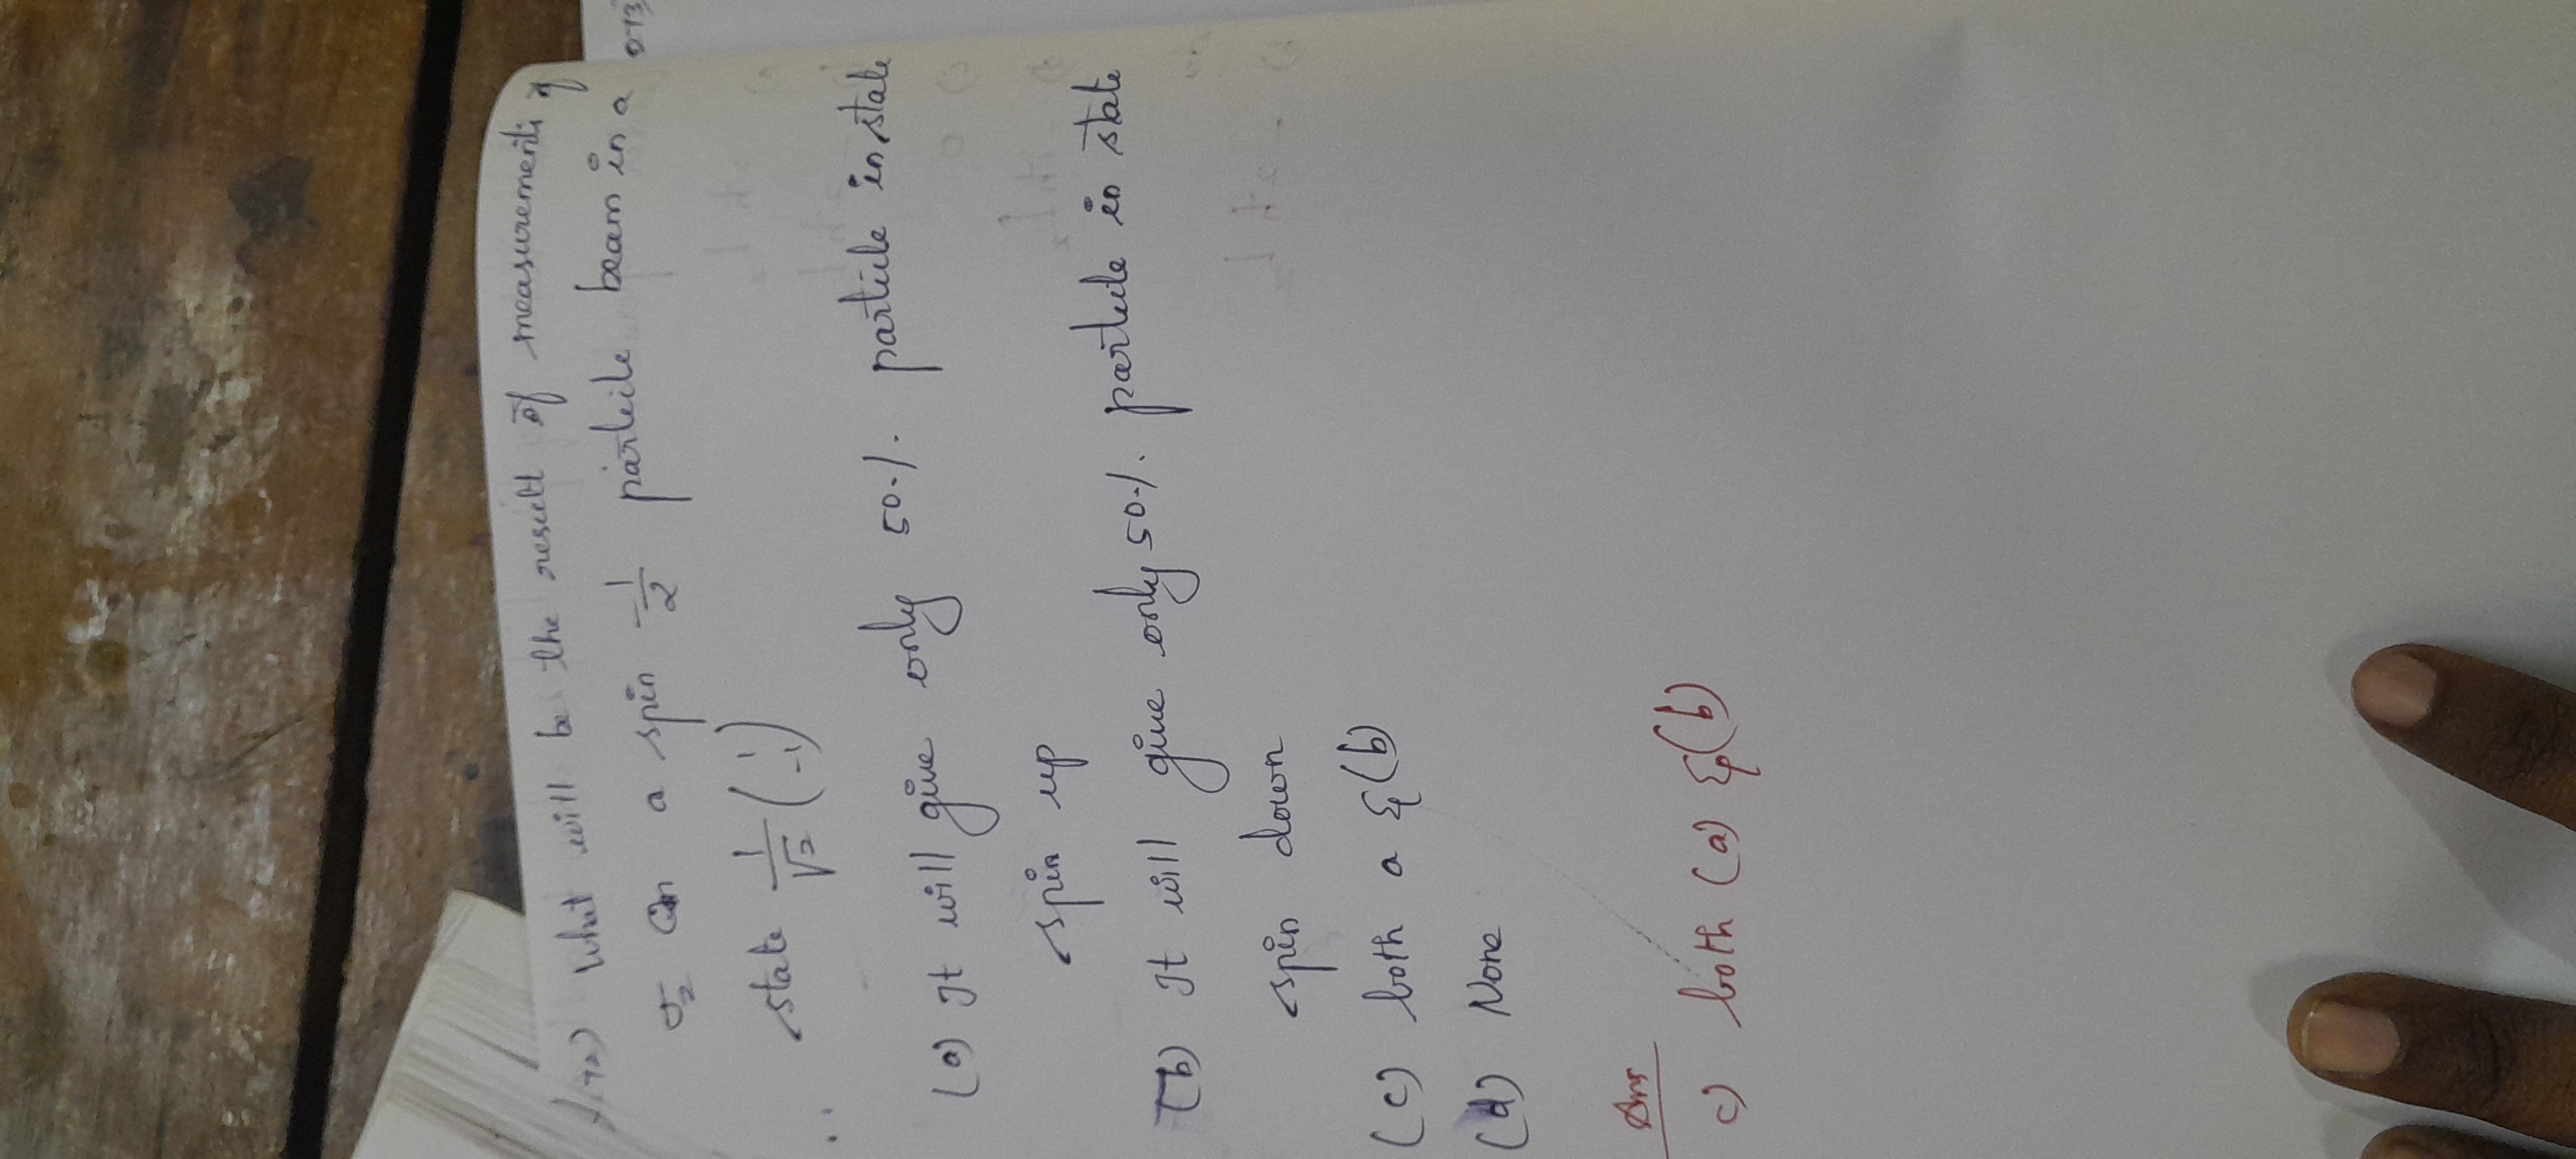 What will be the result of measurementi of
σz on a spin 1/2 particle beam in a
state 1/√2 (1 -1)
(a) It will give only 50%. particle in state
spin up
(b) It will give only 50%. particle in state
spin down
(c) both a & (b)
(d) None
Ans
c) both (a) & (b)